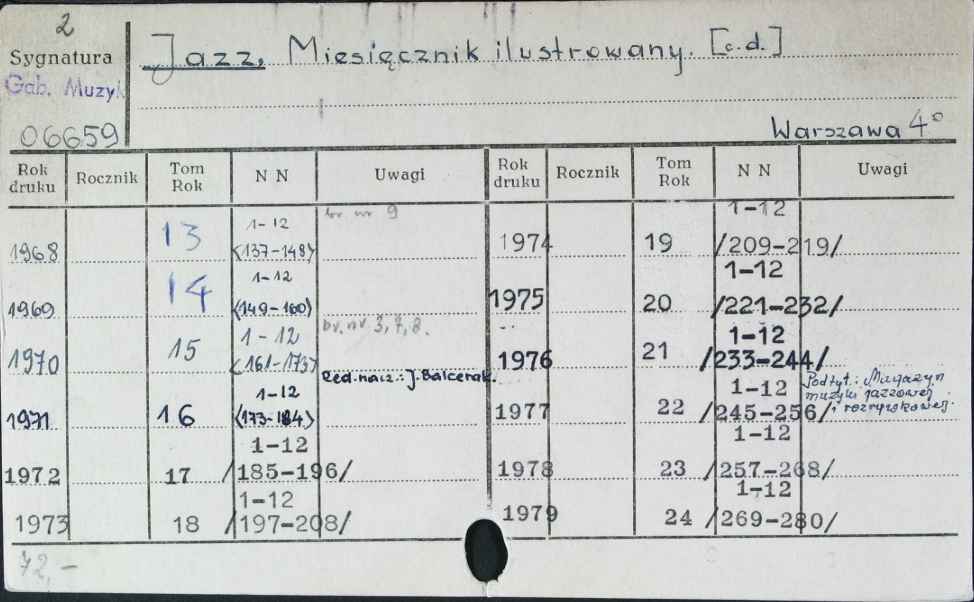 2
Sygnatura
Gab. Muzyk
06659
Jazz. Miesięcznik ilustrowany. [c.d.]
Warszawa 4°
Rok druku Rocznik Tom Rok N N Uwagi Rok druku Rocznik Tom Rok N N Uwagi
1968 13 1-12 <137-148> br. nr 9
1969 14 1-12 <149-160>
1970 15 1-12 <161-173> br. nr. 3, 7, 8.
1971 16 1-12 <173-184> Red. nacz.: J. Balcerak.
1972 17 1-12 /185-196/
1973 18 1-12 /197-208/
1974 19 1-12 /209-219/
1975 20 1-12 /221-232/
1976 21 1-12 /233-244/
1977 22 1-12 /245-256/ Podtyt.: Magazyn muzyki jazzowej i rozrywkowej.
1978 23 1-12 /257-268/
1979 24 1-12 /269-280/
72,-